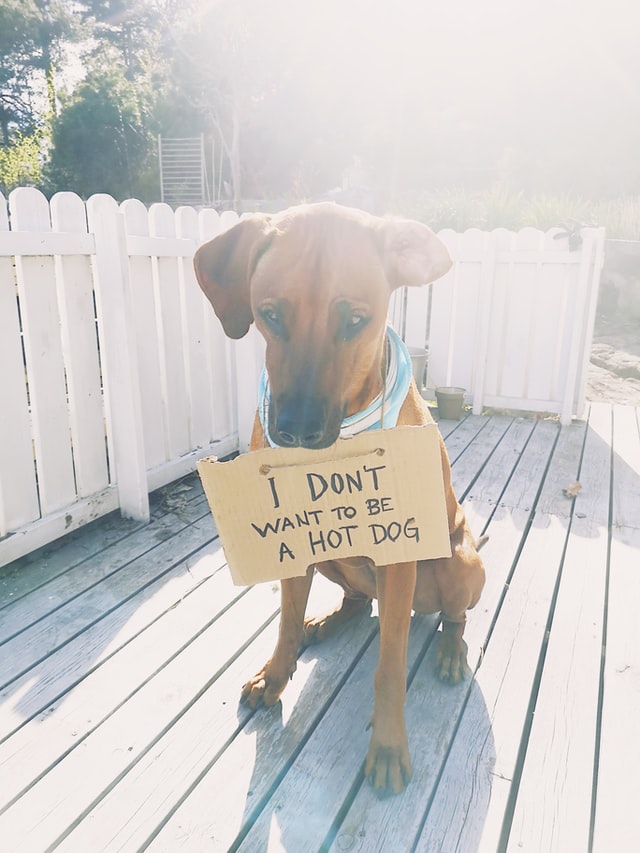 I DON'T
WANT TO BE
A HOT DOG